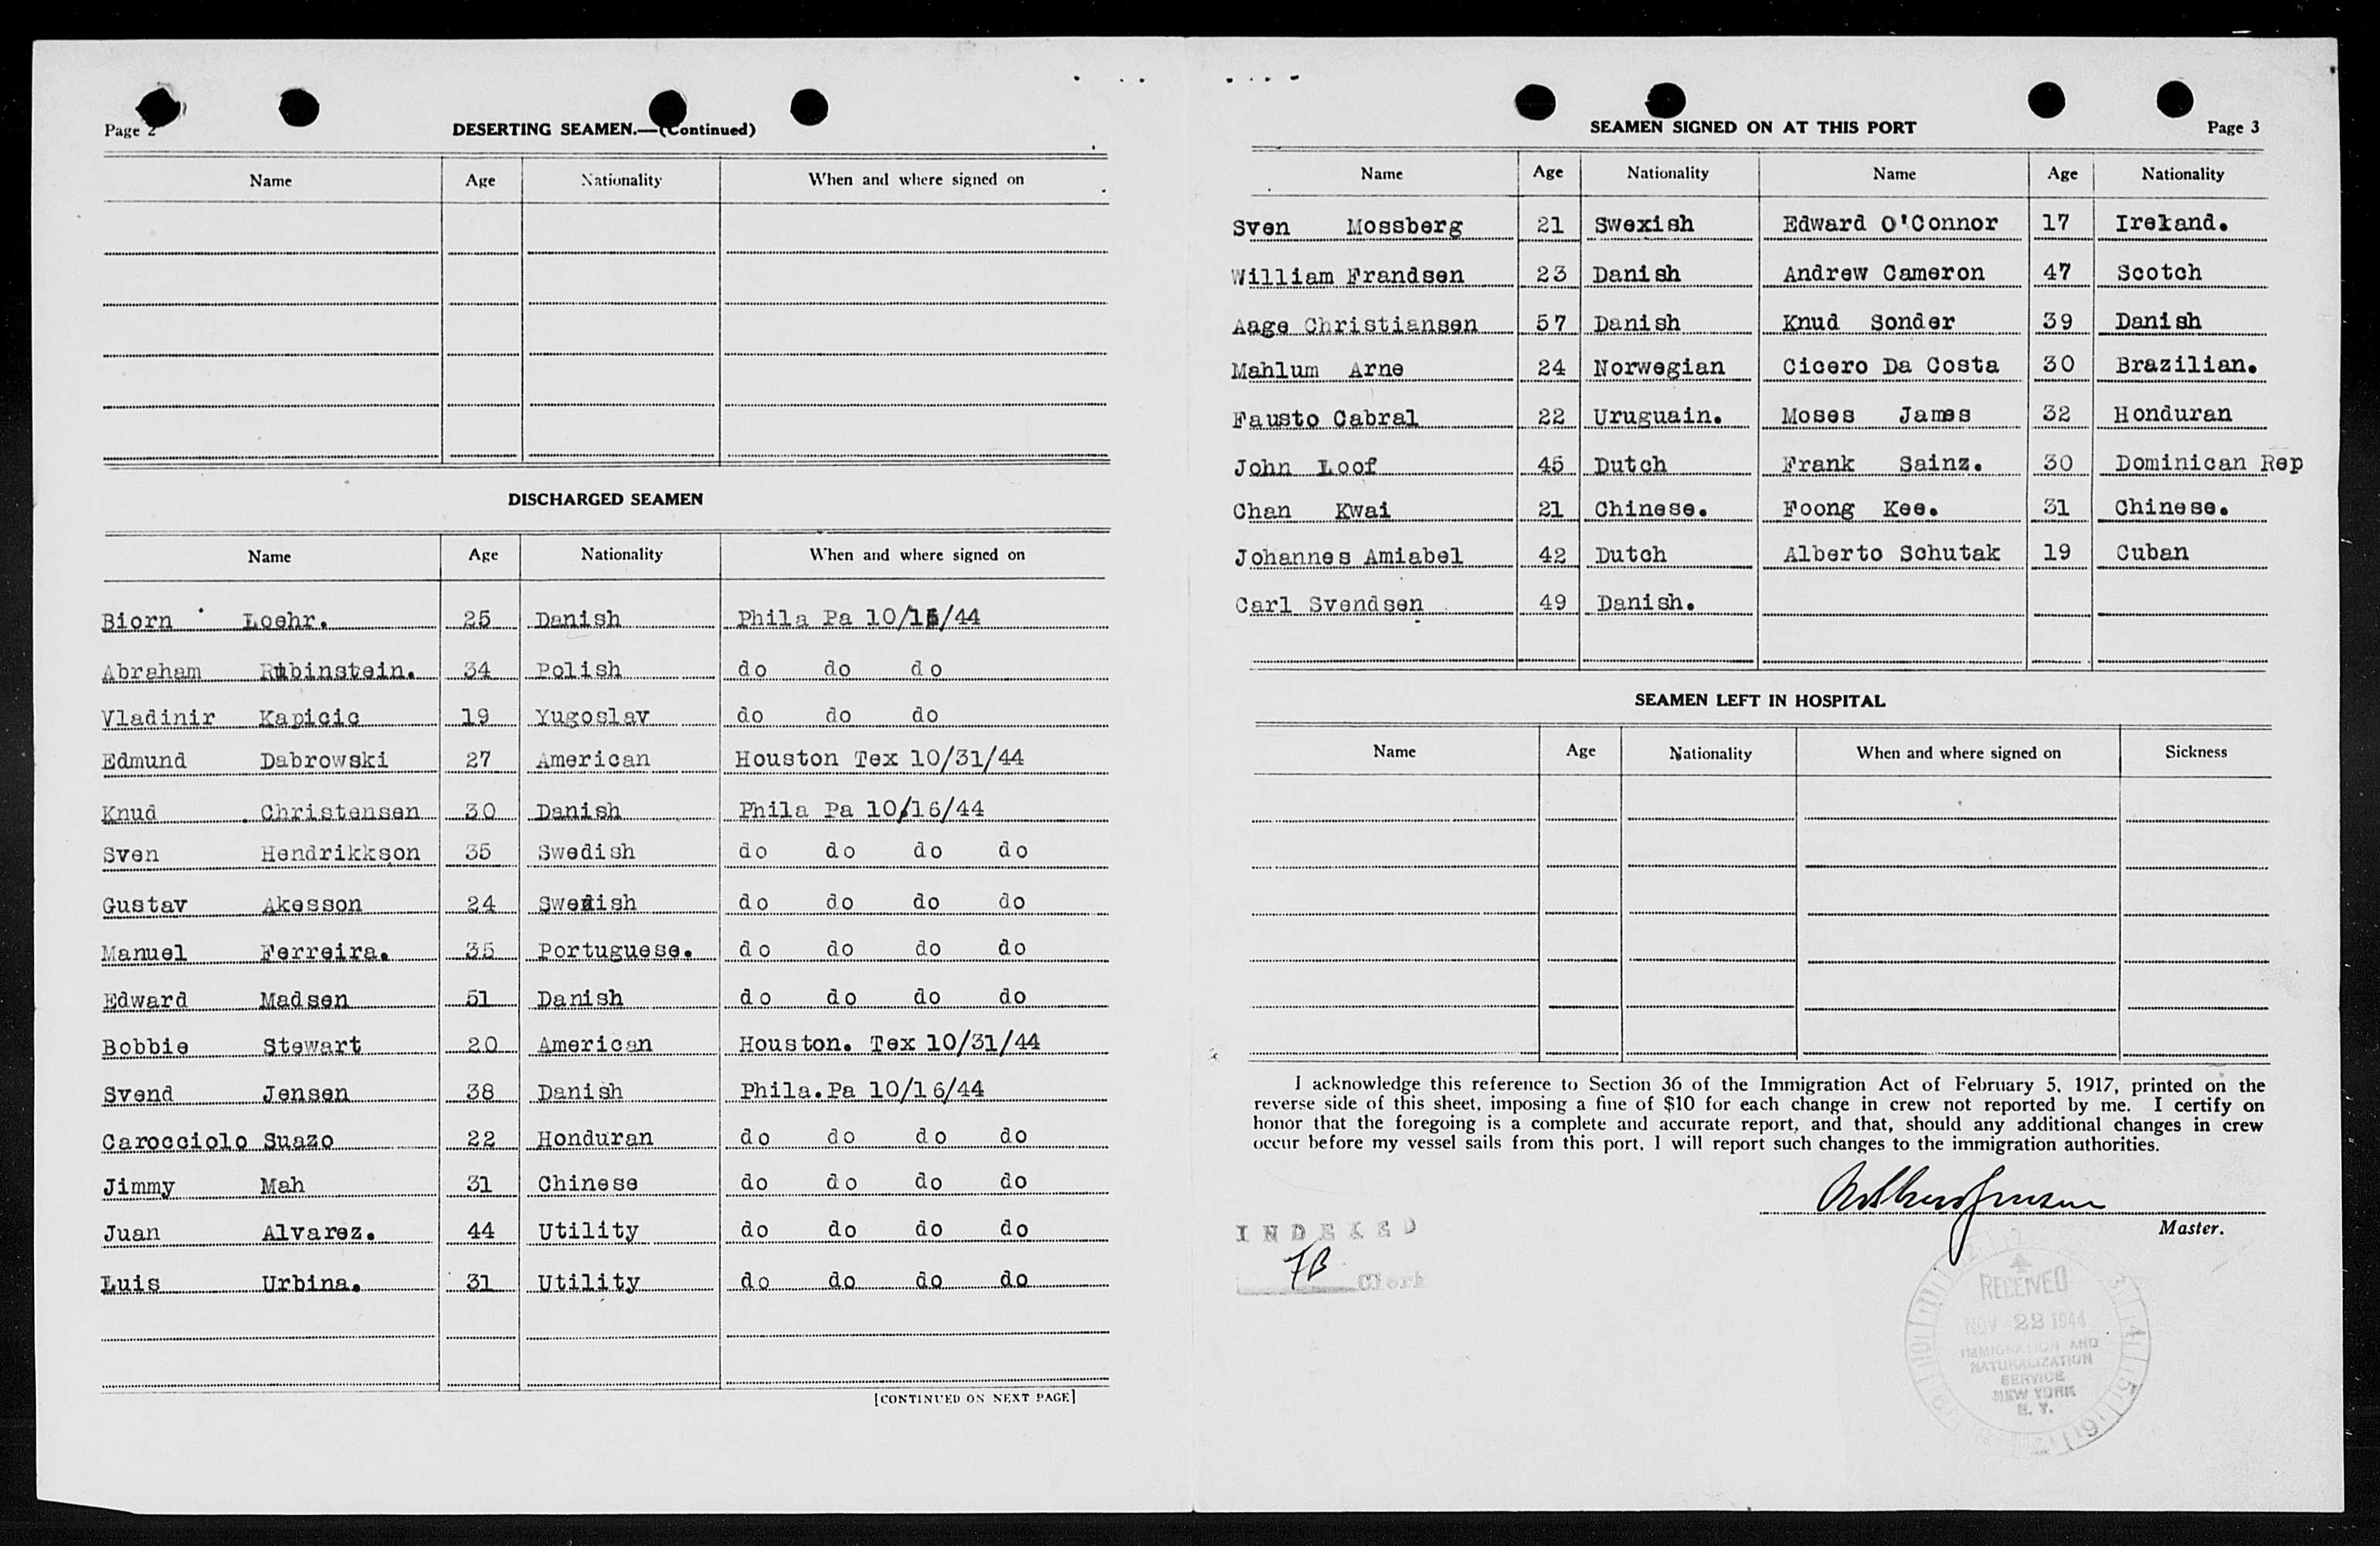 Page 2
DESERTING SEAMEN.—(Continued)
Name Age Nationality When and where signed on
DISCHARGED SEAMEN
Name Age Nationality When and where signed on
Biorn Loehr. 25 Danish Phila Pa 10/16/44
Abraham Rubinstein. 34 Polish do do do
Vladinir Kapicic 19 Yugoslav do do do
Edmund Dabrowski 27 American Houston Tex 10/31/44
Knud Christensen 30 Danish Phila Pa 10/16/44
Sven Hendrikkson 35 Swedish do do do do
Gustav Akesson 24 Swedish do do do do
Manuel Ferreira. 35 Portuguese. do do do do
Edward Madsen 51 Danish do do do do
Bobbie Stewart 20 American Houston. Tex 10/31/44
Svend Jensen 38 Danish Phila.Pa 10/16/44
Carocciolo Suazo 22 Honduran do do do do
Jimmy Mah 31 Chinese do do do do
Juan Alvarez. 44 Utility do do do do
Luis Urbina. 31 Utility do do do do
[CONTINUED ON NEXT PAGE]
SEAMEN SIGNED ON AT THIS PORT
Page 3
Name Age Nationality Name Age Nationality
Sven Mossberg 21 Swexish Edward O'Connor 17 Irekand.
William Frandsen 23 Danish Andrew Cameron 47 Scotch
Aage Christiansen 57 Danish Knud Sonder 39 Danish
Mahlum Arne 24 Norwegian Cicero Da Costa 30 Brazilian.
Fausto Cabral 22 Uruguain. Moses James 32 Honduran
John Loof 45 Dutch Frank Sainz. 30 Dominican Rep
Chan Kwai 21 Chinese. Foong Kee. 31 Chinese.
Johannes Amiabel 42 Dutch Alberto Schutak 19 Cuban
Carl Svendsen 49 Danish.
SEAMEN LEFT IN HOSPITAL
Name Age Nationality When and where signed on Sickness
I acknowledge this reference to Section 36 of the Immigration Act of February 5, 1917, printed on the
reverse side of this sheet, imposing a fine of $10 for each change in crew not reported by me. I certify on
honor that the foregoing is a complete and accurate report, and that, should any additional changes in crew
occur before my vessel sails from this port, I will report such changes to the immigration authorities.
Master.
INDEXED
FB Clerk
RECEIVED
NOV 22 1944
IMMIGRATION AND
NATURALIZATION
SERVICE
NEW YORK
N. Y.